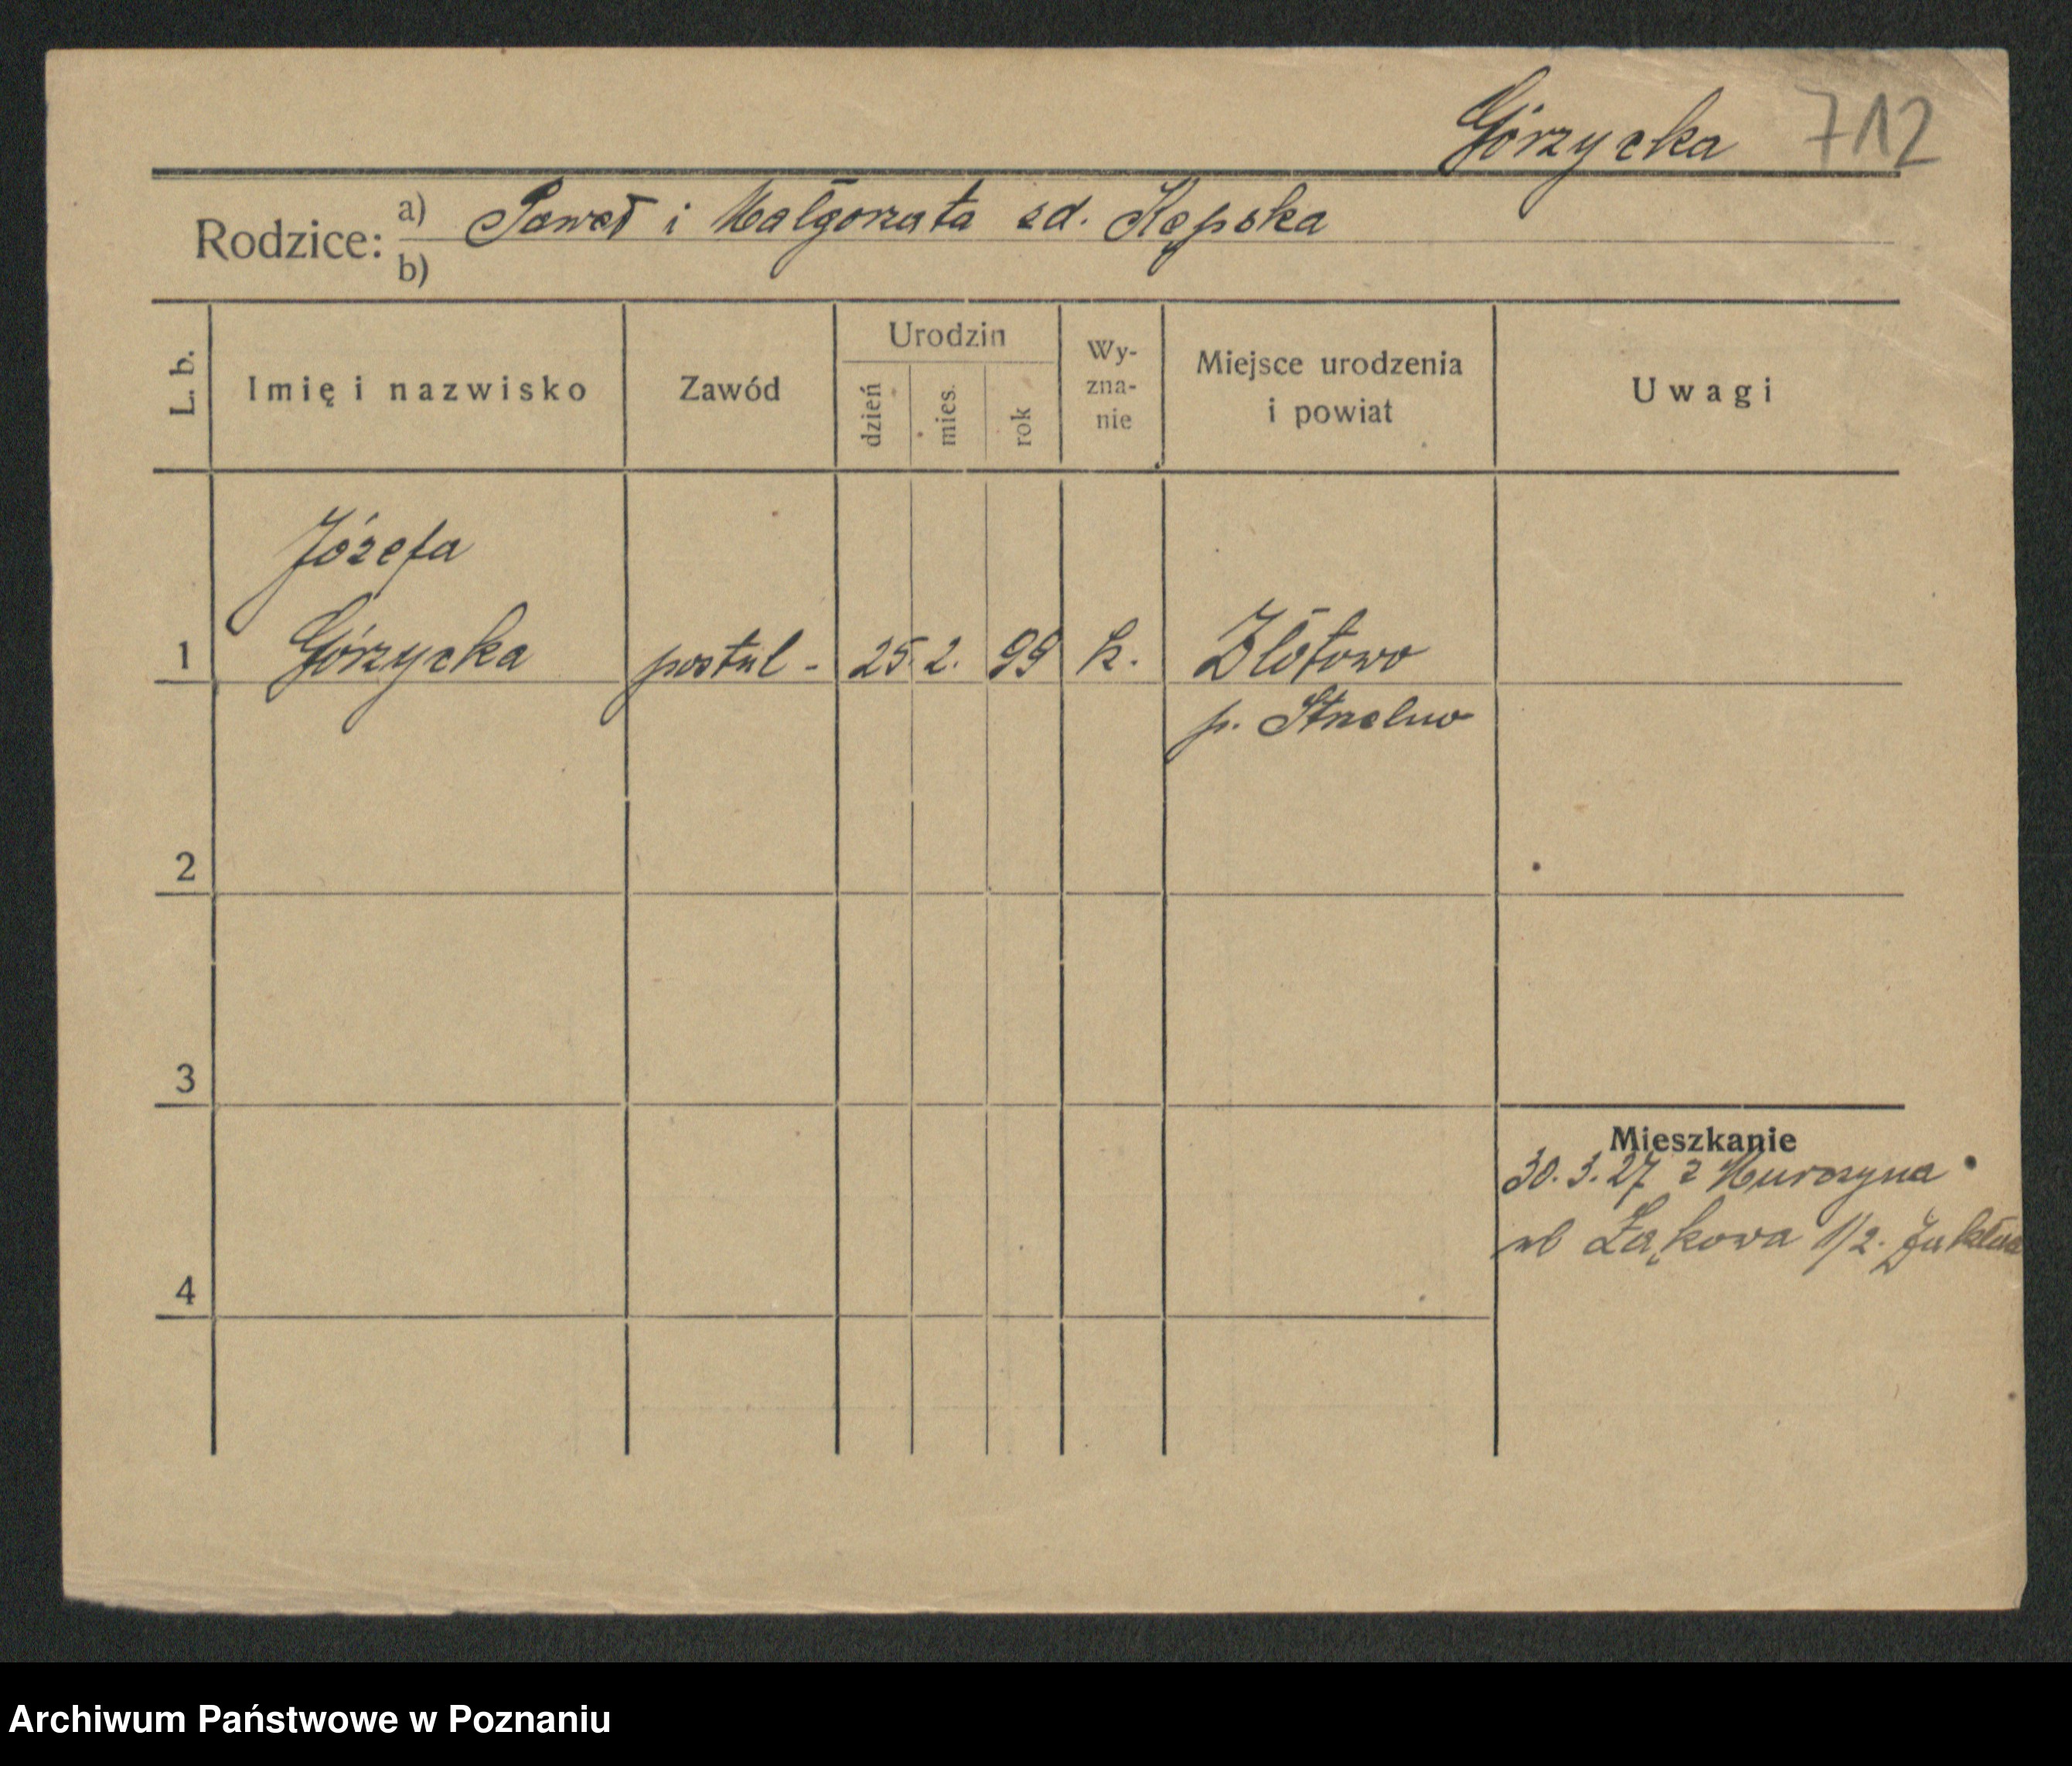 Górzycka 712
Rodzice: a) Paweł i Małgorzata zd. Kępska
b)
L. b.
Imię i nazwisko
Zawód
Urodzin
dzień
mies.
rok
Wy-
zna-
nie
Miejsce urodzenia
i powiat
Uwagi
Józefa
1 Górzycka postul - 25. 2. 99 k. Złotowo
p. Strzelno
2
3
Mieszkanie
30. 3. 27 z Murczyna
ul Łąkowa 1/2.
4
Archiwum Państwowe w Poznaniu